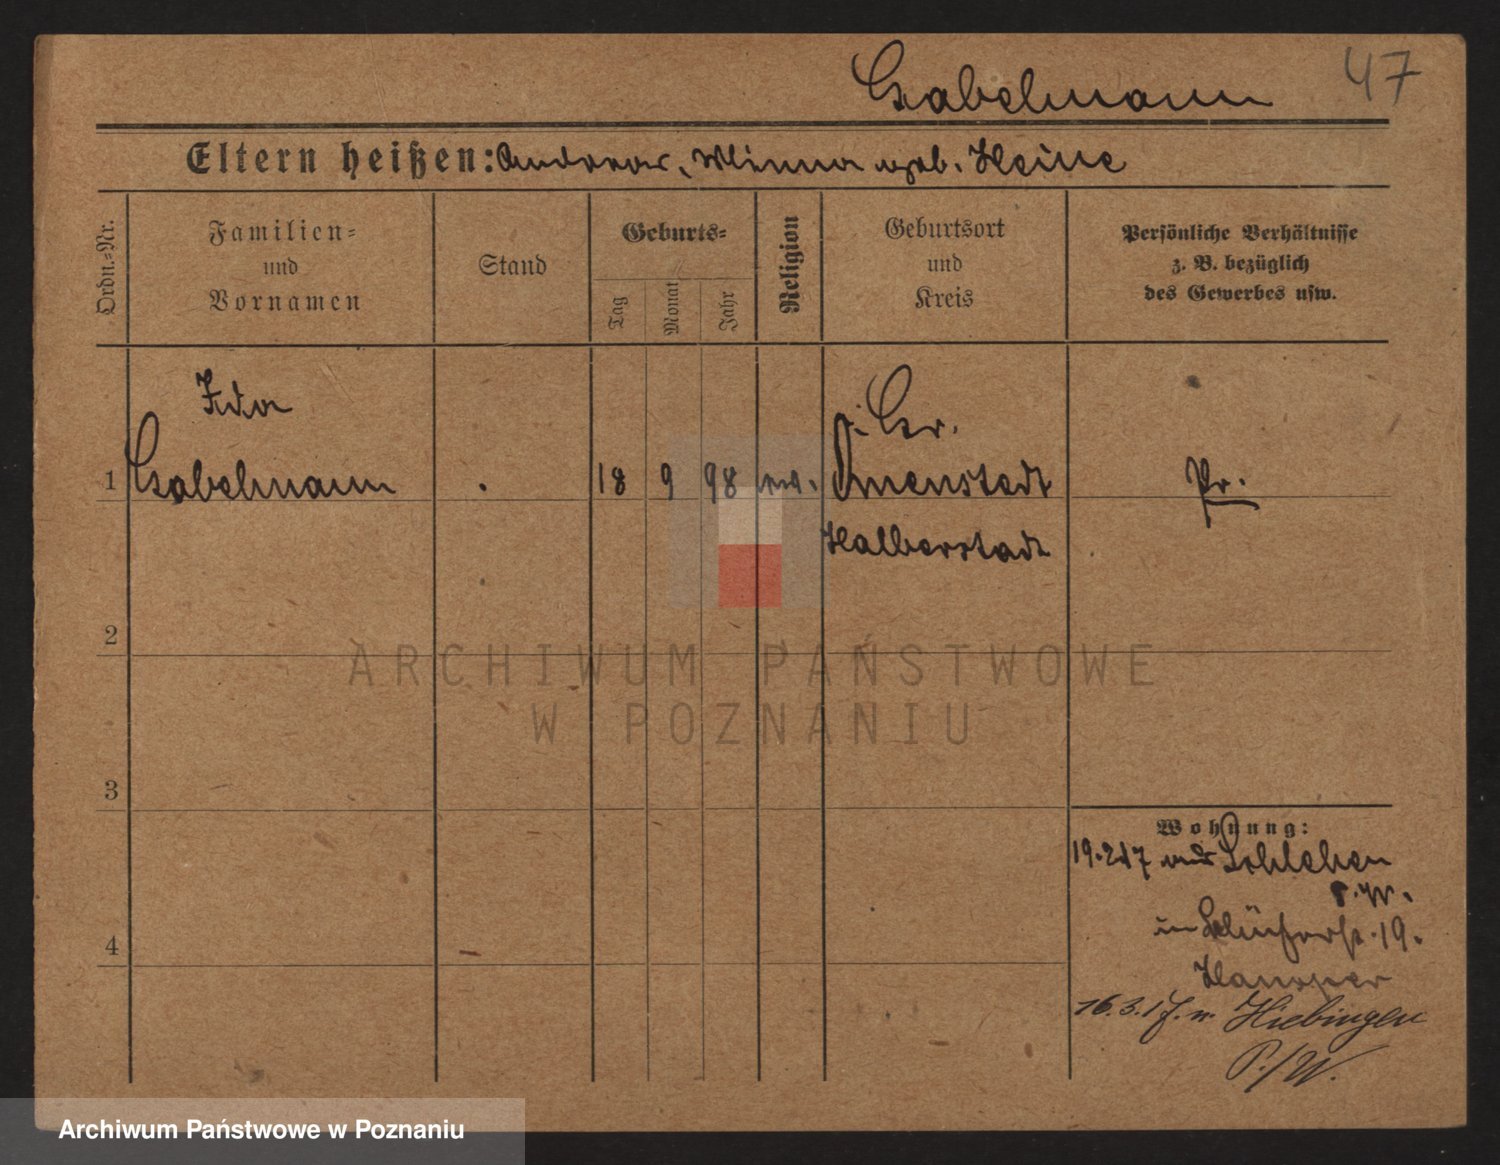 Gabelmann 47
Eltern heißen: Andreas, Minna geb. Heine
Ordn.=Nr.
Familien=
und
Vornamen
Stand
Geburts=
Tag
Monat
Jahr
Religion
Geburtsort
und
Kreis
Persönliche Verhältnisse
z. B. bezüglich
des Gewerbes usw.
Ida
1 Gabelmann . 18 9 98 Pr.
Halberstadt
2
3
4
Wohnung:
19.2.17 aus Schlehen
P.W.
19.
Hannover
16.3.17. n. Hiebingen
P./W.
ARCHIWUM PAŃSTWOWE
W POZNANIU
Archiwum Państwowe w Poznaniu